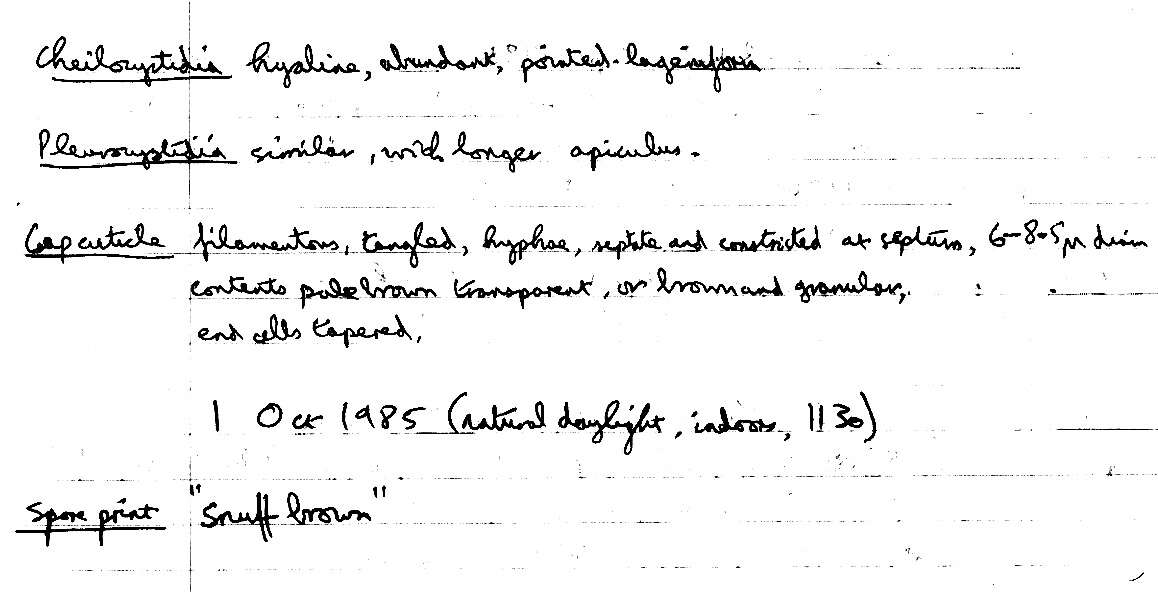 Cheilocystidia hyaline, abundant, pointed-lageniform
Pleurocystidia similar, with longer apiculus.
Cap cuticle filamentous, tangled, hyphae, septate and constricted at septum, 6-8.5µ diam
contents pale brown transparent, or brown and granular,
end cells tapered,
1 Oct 1985 (natural daylight, indoors, 1130)
Spore print "Snuff brown"